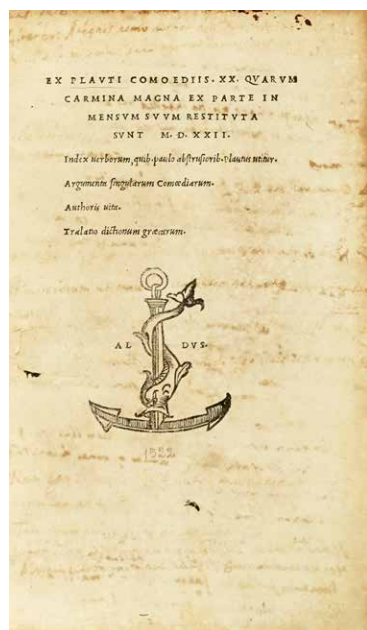 EX PLAVTI COMOEDIIS. XX. QVARVM
CARMINA MAGNA EX PARTE IN
MENSVM SVVM RESTITVTA
SVNT M. D. XXII.
Index uerborum, quib. paulo abstrusiorib. Plautus utitur.
Argumenta singularum Comœdiarum.
Authoris uita.
Tralatio dictionum græcarum.
AL DVS.
1522